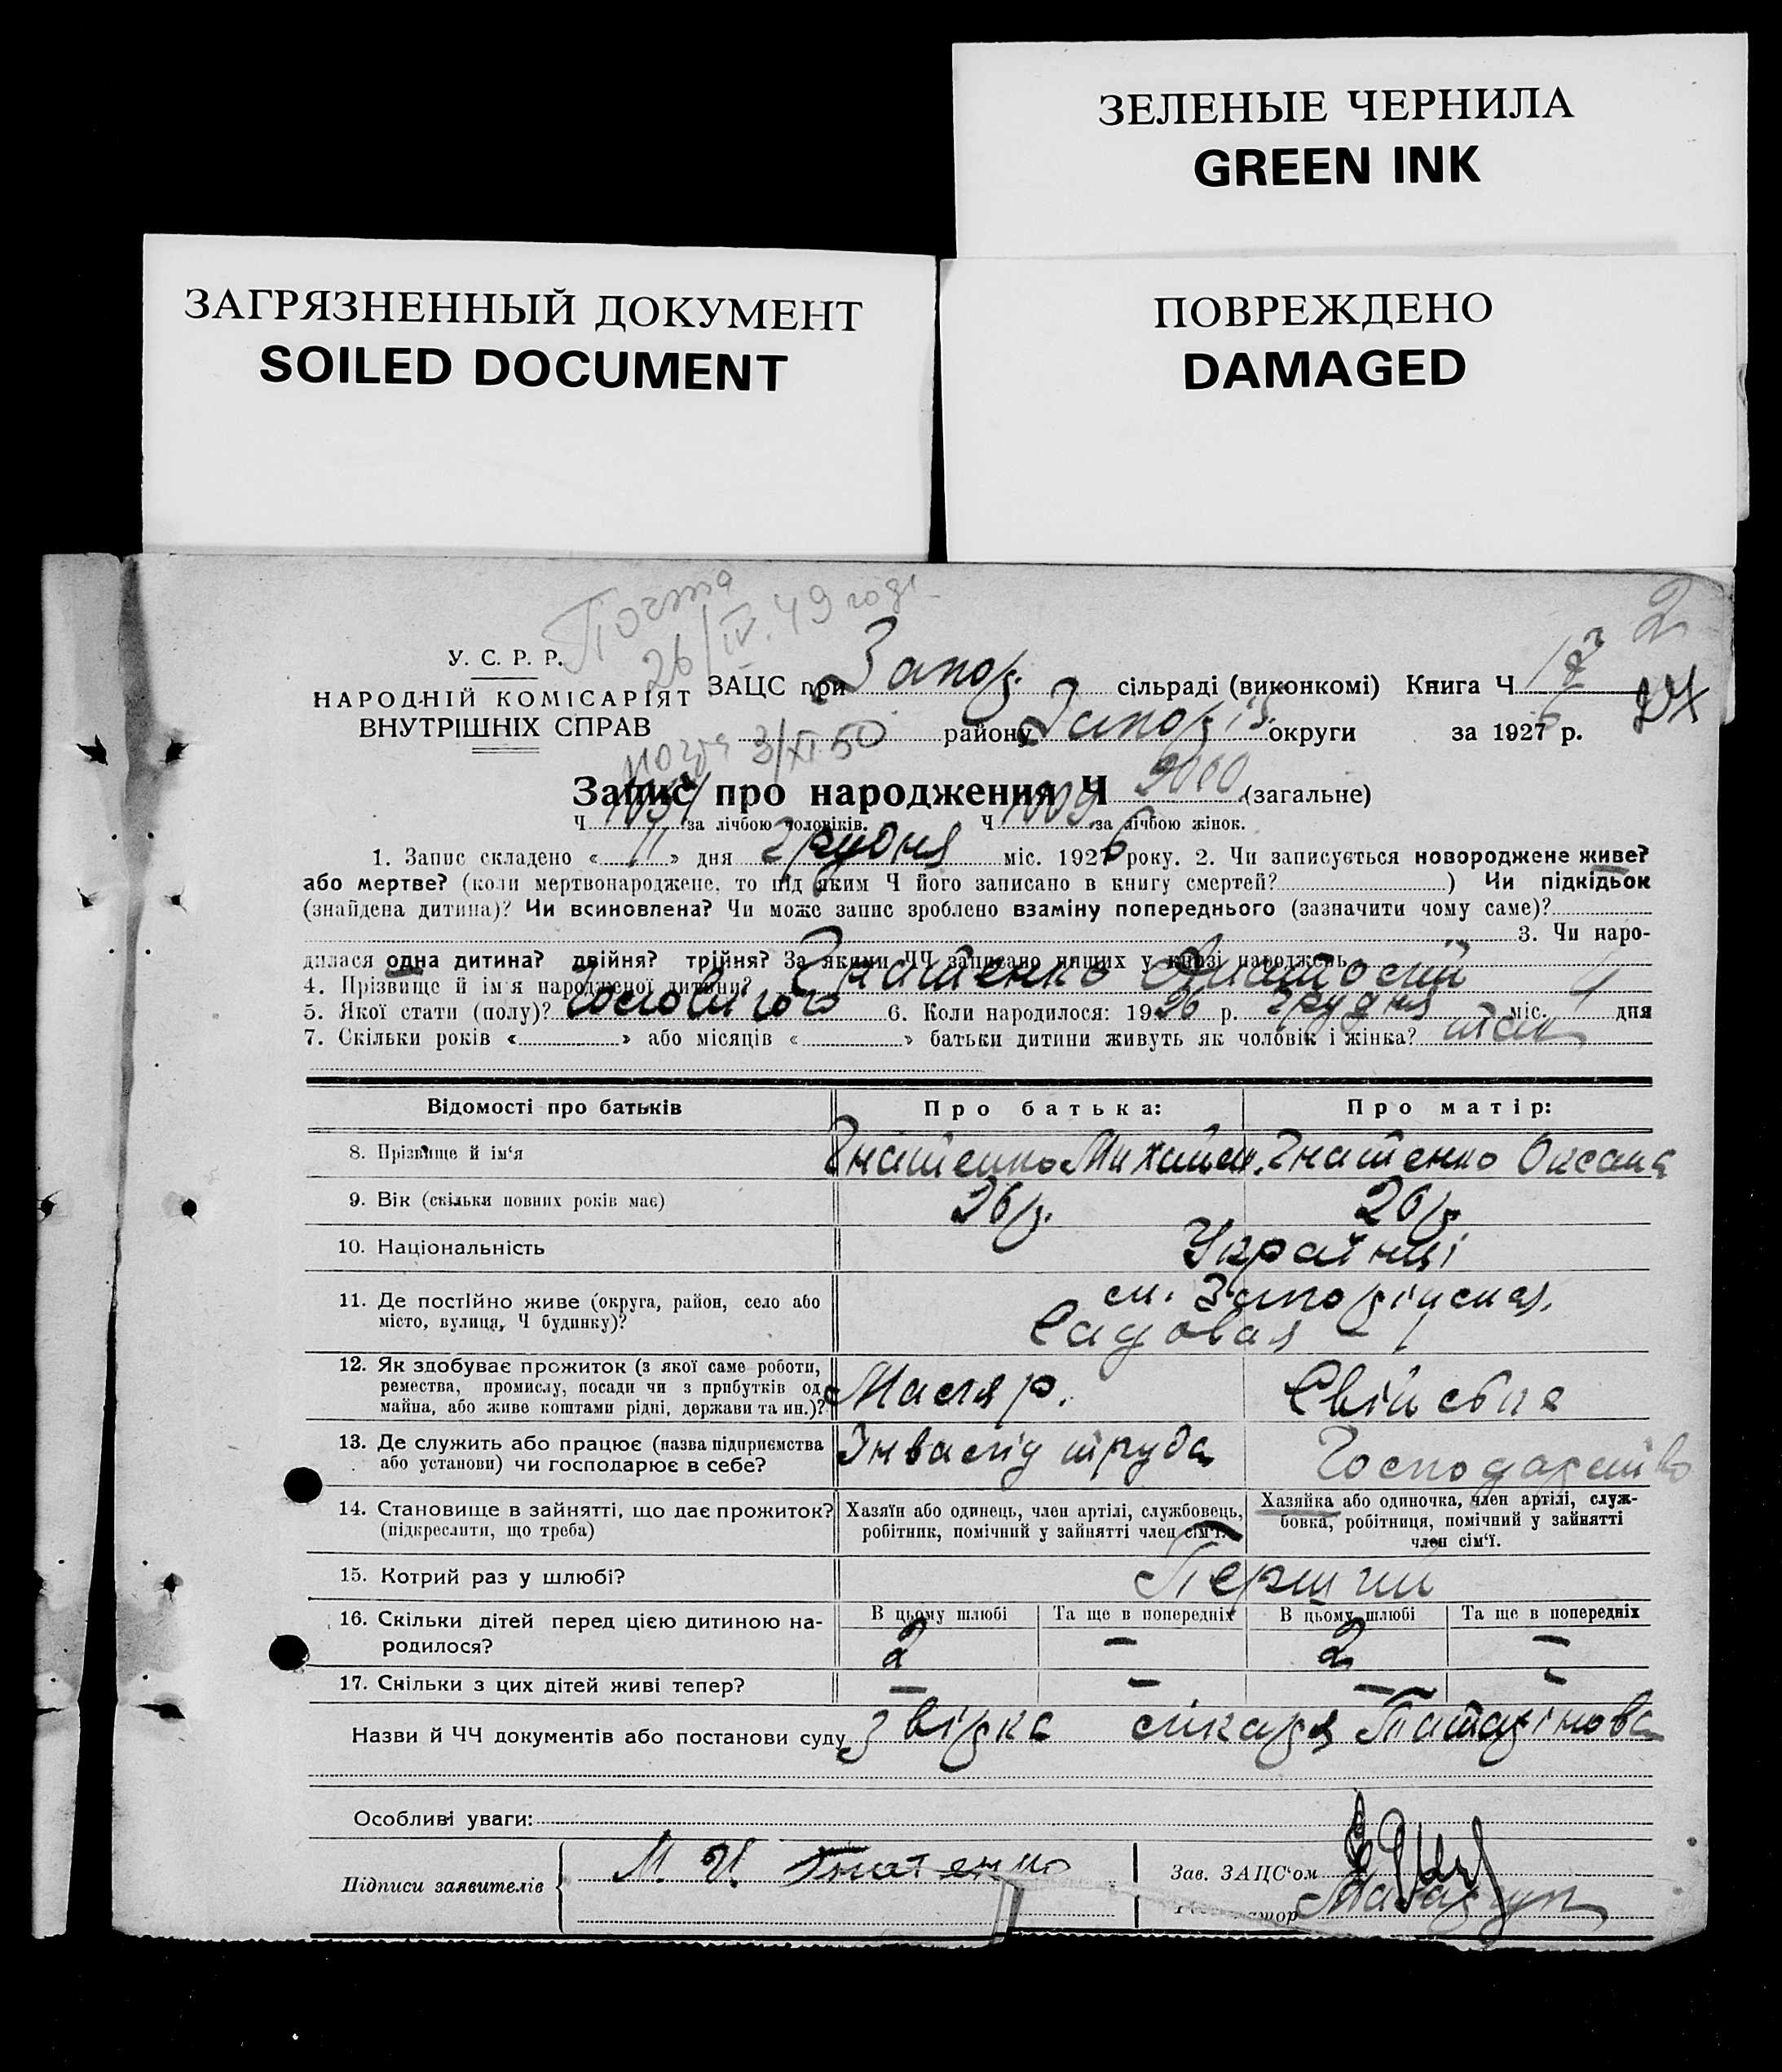 ЗЕЛЕНЫЕ ЧЕРНИЛА
GREEN INK
ЗАГРЯЗНЕННЫЙ ДОКУМЕНТ
SOILED DOCUMENT
ПОВРЕЖДЕНО
DAMAGED
2
26/IV.49
У. С. Р. Р.
НАРОДНІЙ КОМІСАРІЯТ
ВНУТРІШНІХ СПРАВ
ЗАЦС при Запор. сільраді (виконкомі) Книга Ч
3/XI 50 району Запоріз округи за 1926 р.
Запис про народження Ч (загальне)
Ч за лічбою чоловіків. Ч 1009 за лічбою жінок.
1. Запис складено « 11 » дня Грудня міс. 1926 року. 2. Чи записується новороджене живе?
або мертве? (коли мертвонароджене, то під яким Ч його записано в книгу смертей? ) Чи підкідьок
(знайдена дитина)? Чи всиновлена? Чи може запис зроблено взаміну попереднього (зазначити чому саме)?
3. Чи наро-
дилася одна дитина? двійня? трійня? За якими ЧЧ записано инших у книзі народжень
4. Прізвище й ім'я народженої дитини? Гнатенко Анатолій
5. Якої стати (полу)? Чоловічого 6. Коли народилося: 1926 р. Грудня міс. 1 дня
7. Скільки років « » або місяців « » батьки дитини живуть як чоловік і жінка? так
Відомості про батьків
Про батька:
Про матір:
8. Прізвище й ім'я
Гнатенко Михайло.
Гнатенко Оксана
9. Вік (скільки повних років має)
26 р.
26 р.
10. Національність
Українці
11. Де постійно живе (округа, район, село або
місто, вулиця, Ч будинку)?
м. Запоріжжя,
Садовая
12. Як здобуває прожиток (з якої саме роботи,
ремества, промислу, посади чи з прибутків од
майна, або живе коштами рідні, держави та ин.)?
Маляр.
13. Де служить або працює (назва підприємства
або установи) чи господарює в себе?
Інвалід труда
Господарство
14. Становище в зайнятті, що дає прожиток?
(підкреслити, що треба)
Хазяїн або одинець, член артілі, службовець,
робітник, помічний у зайнятті член сім'ї.
Хазяйка або одиночка, член артілі, служ-
бовка, робітниця, помічний у зайнятті
член сім'ї.
15. Котрий раз у шлюбі?
Перший
16. Скільки дітей перед цією дитиною на-
родилося?
В цьому шлюбі
Та ще в попередніх
В цьому шлюбі
Та ще в попередніх
2 – 2 –
17. Скільки з цих дітей живі тепер?
– – – –
Назви й ЧЧ документів або постанови суду
лікаря
Особливі уваги:
Підписи заявителів
М. И. Гнатенко
Зав. ЗАЦС'ом